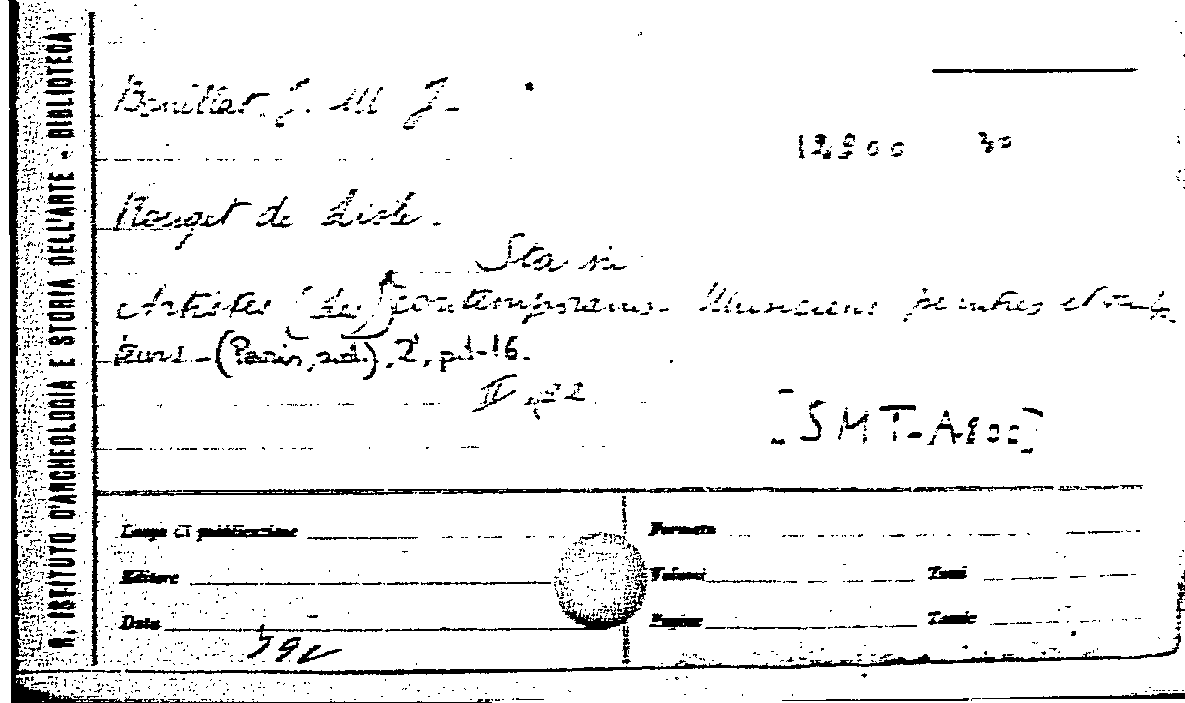 R. ISTITUTO D'ARCHEOLOGIA E STORIA DELL'ARTE - BIBLIOTECA
Bouillat. J. M J.-
12800 30
Rouget de Lisle.
Sta in
Artistes (des) contemporains. Musiciens peintres et sculp
teurs - (Paris, s.d.), 2, p. 1-16.
II
[SMT-A800]
Luogo di pubblicazione
Formato
Editore
Volumi
Tomi
Data
Pagine
Tavole